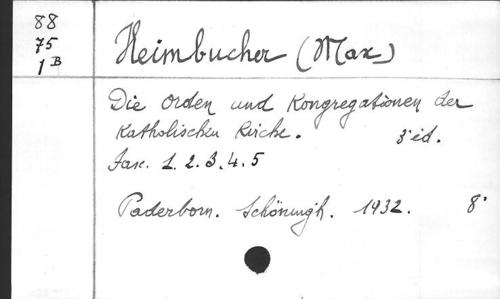 88
75
1 B
Heimbucher (Max)
Die Orden und Kongregationen der
Katholischen Kirche. 3e éd.
Fasc. 1. 2. 3. 4. 5
Paderborn. Schöningh. 1932. 8°